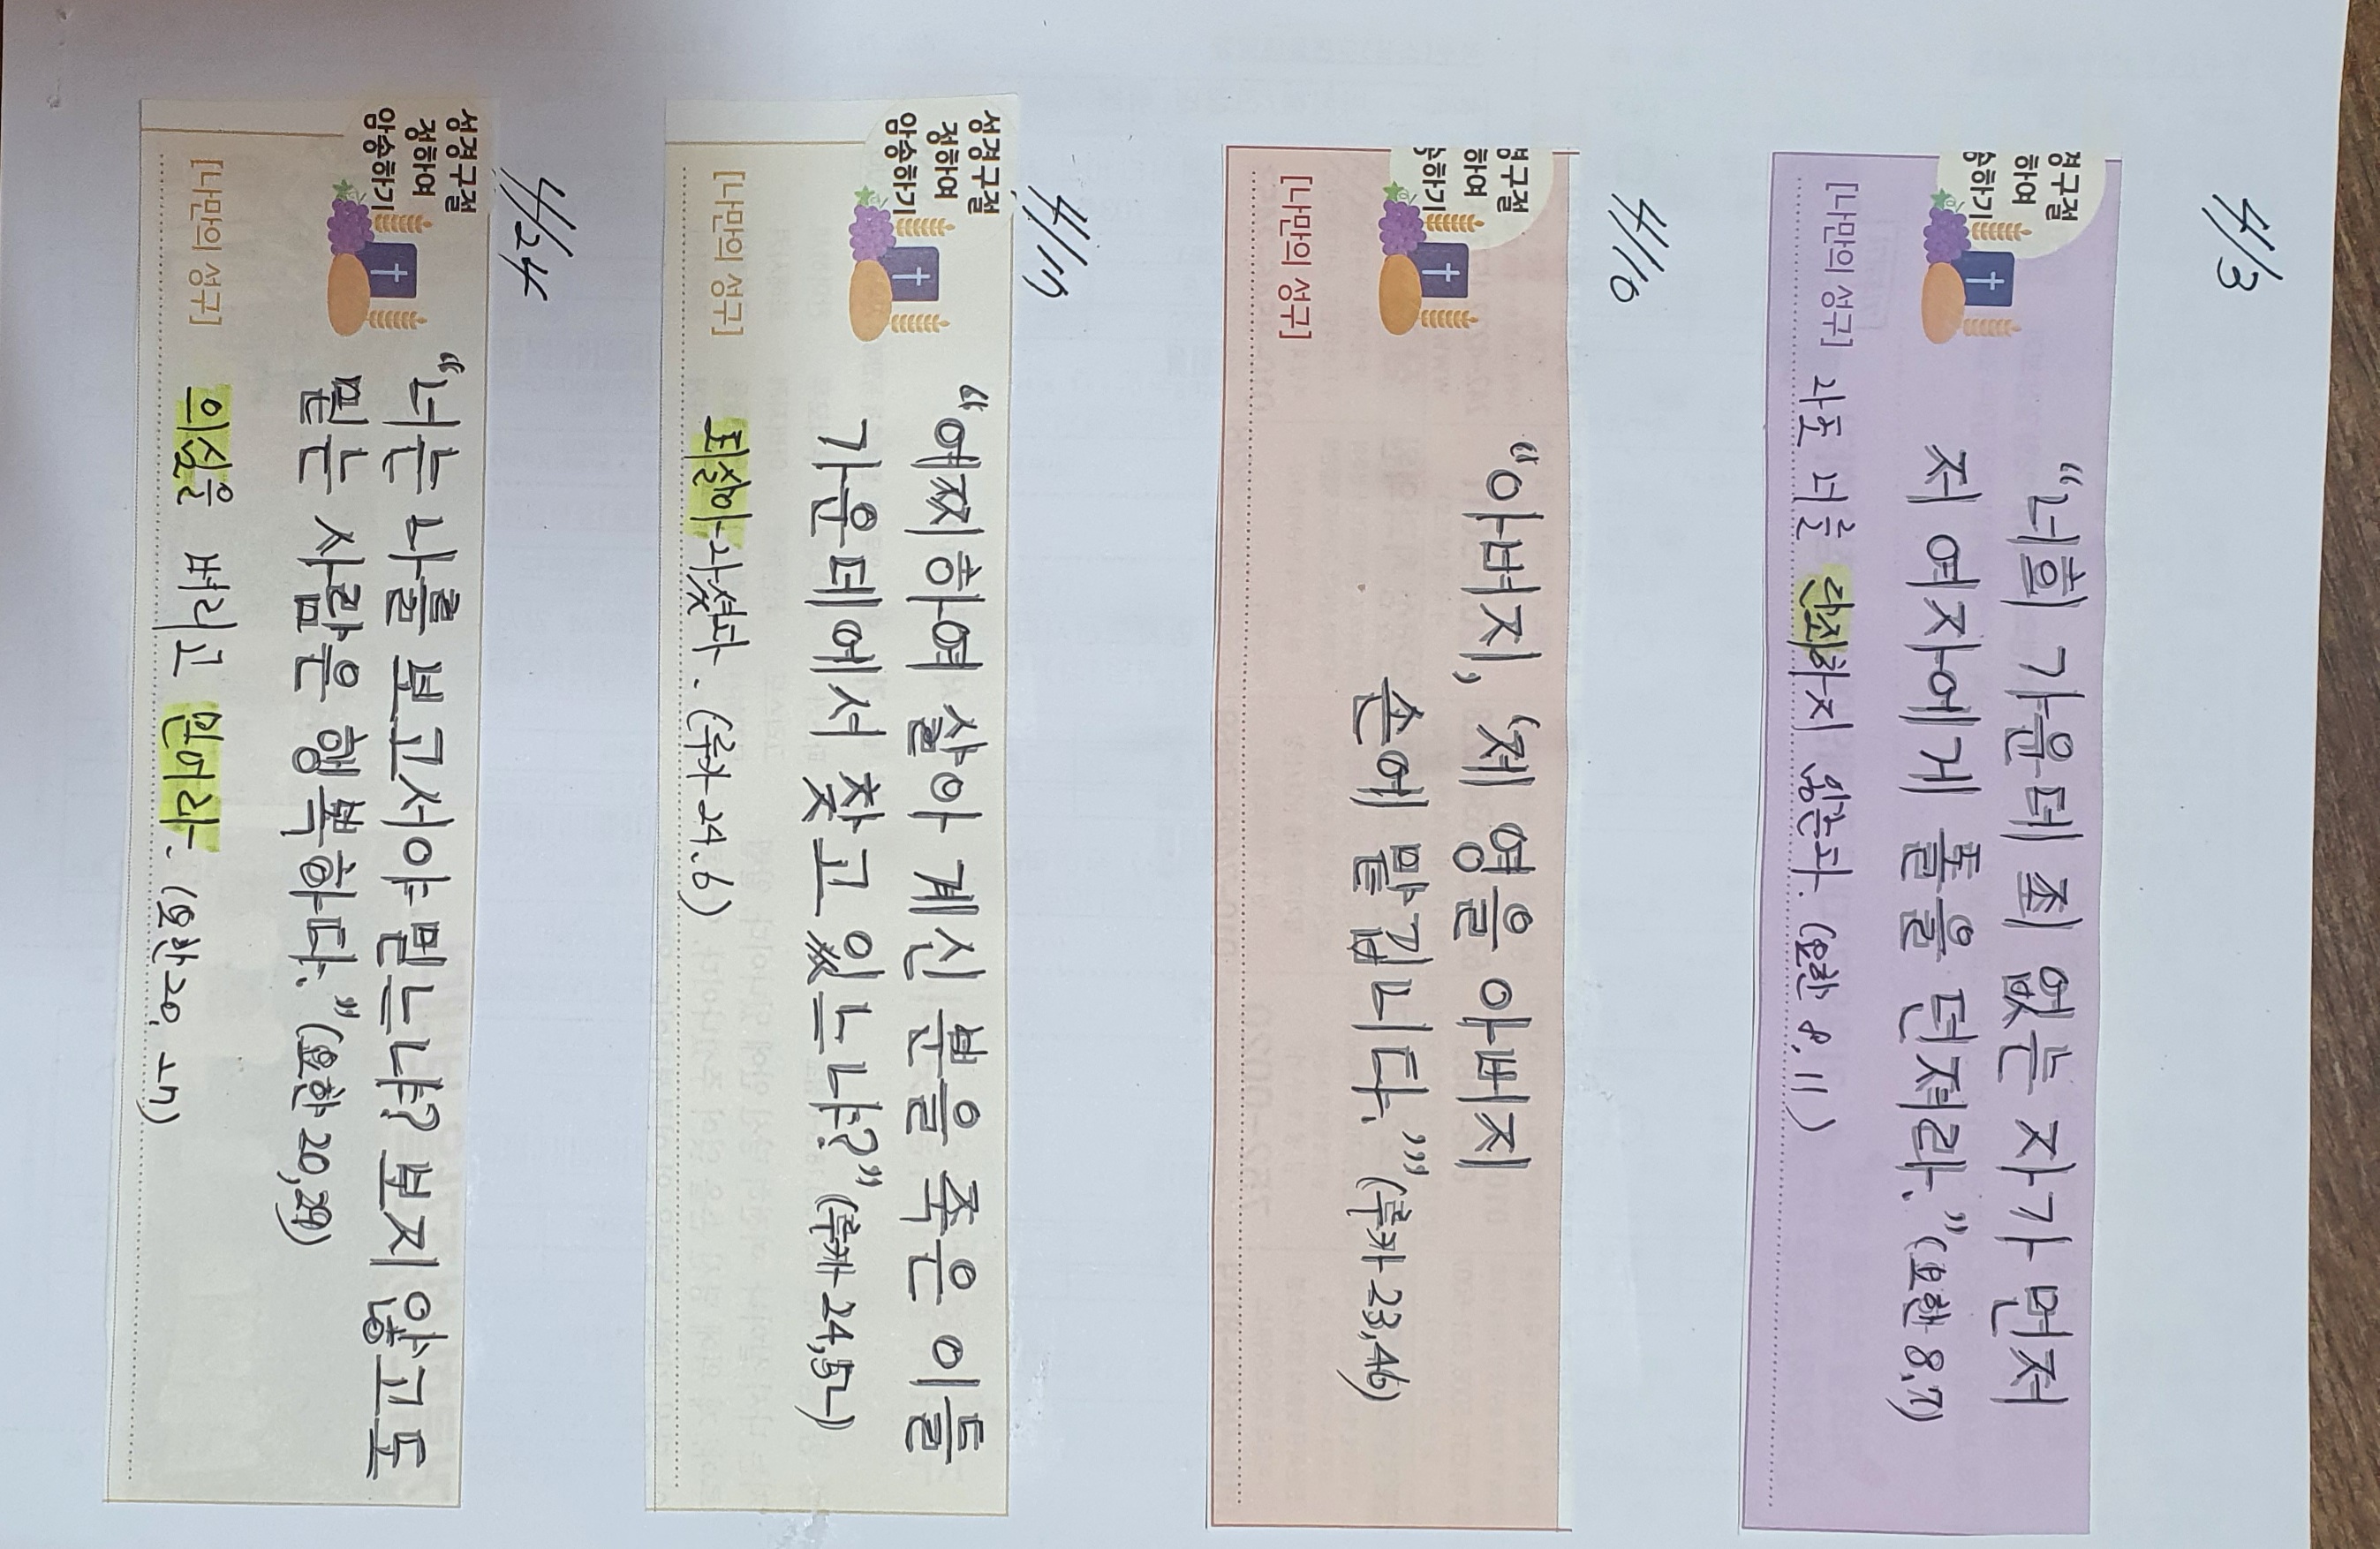 4/3
경구절
하여
송하기
"너희 가운데 죄 없는 자가 먼저
저 여자에게 돌을 던져라." (요한 8,7)
[나만의 성구] 나도 너를 단죄하지 않는다. (요한 8, 11)
4/10
경구절
하여
송하기
"아버지, '제 영을 아버지
손에 맡깁니다.'" (루카 23,46)
[나만의 성구]
성경구절
정하여
암송하기
"어찌하여 살아 계신 분을 죽은 이들
가운데에서 찾고 있느냐?" (루카 24,5ㄴ)
[나만의 성구] 되살아나셨다. (루카 24. 6)
4/24
성경구절
정하여
암송하기
"너는 나를 보고서야 믿느냐? 보지 않고도
믿는 사람은 행복하다." (요한 20,29)
[나만의 성구] 의심을 버리고 믿어라. (요한 20, 27)